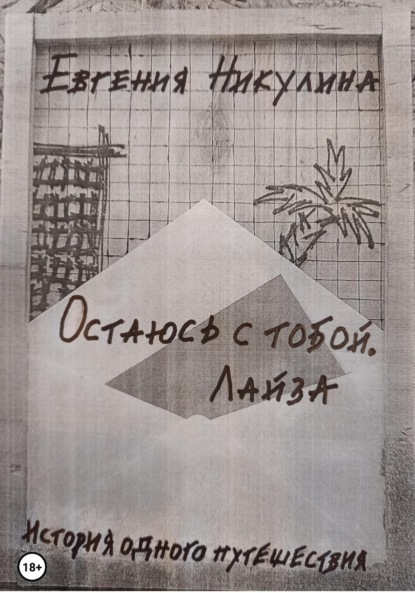 Евгения Никулина
Остаюсь с тобой.
Лайза
История одного путешествия
18+